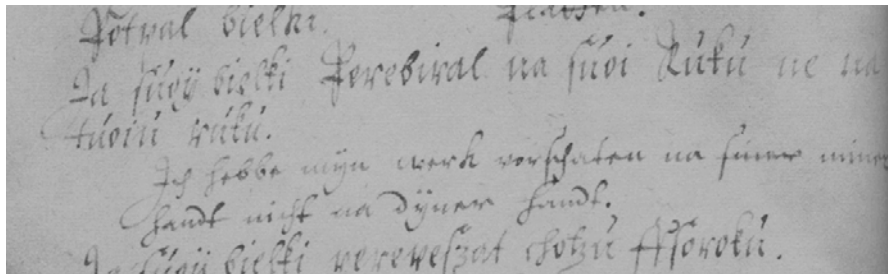 Potral bielki.
Ia suoÿ bielki Perebiral na suoi Ruku ne na
tuoiu ruku.
Ich hebbe myn werk vorschaten na miner
handt nicht na dyner handt.
Ia suoÿ bielki chotzu soroku.